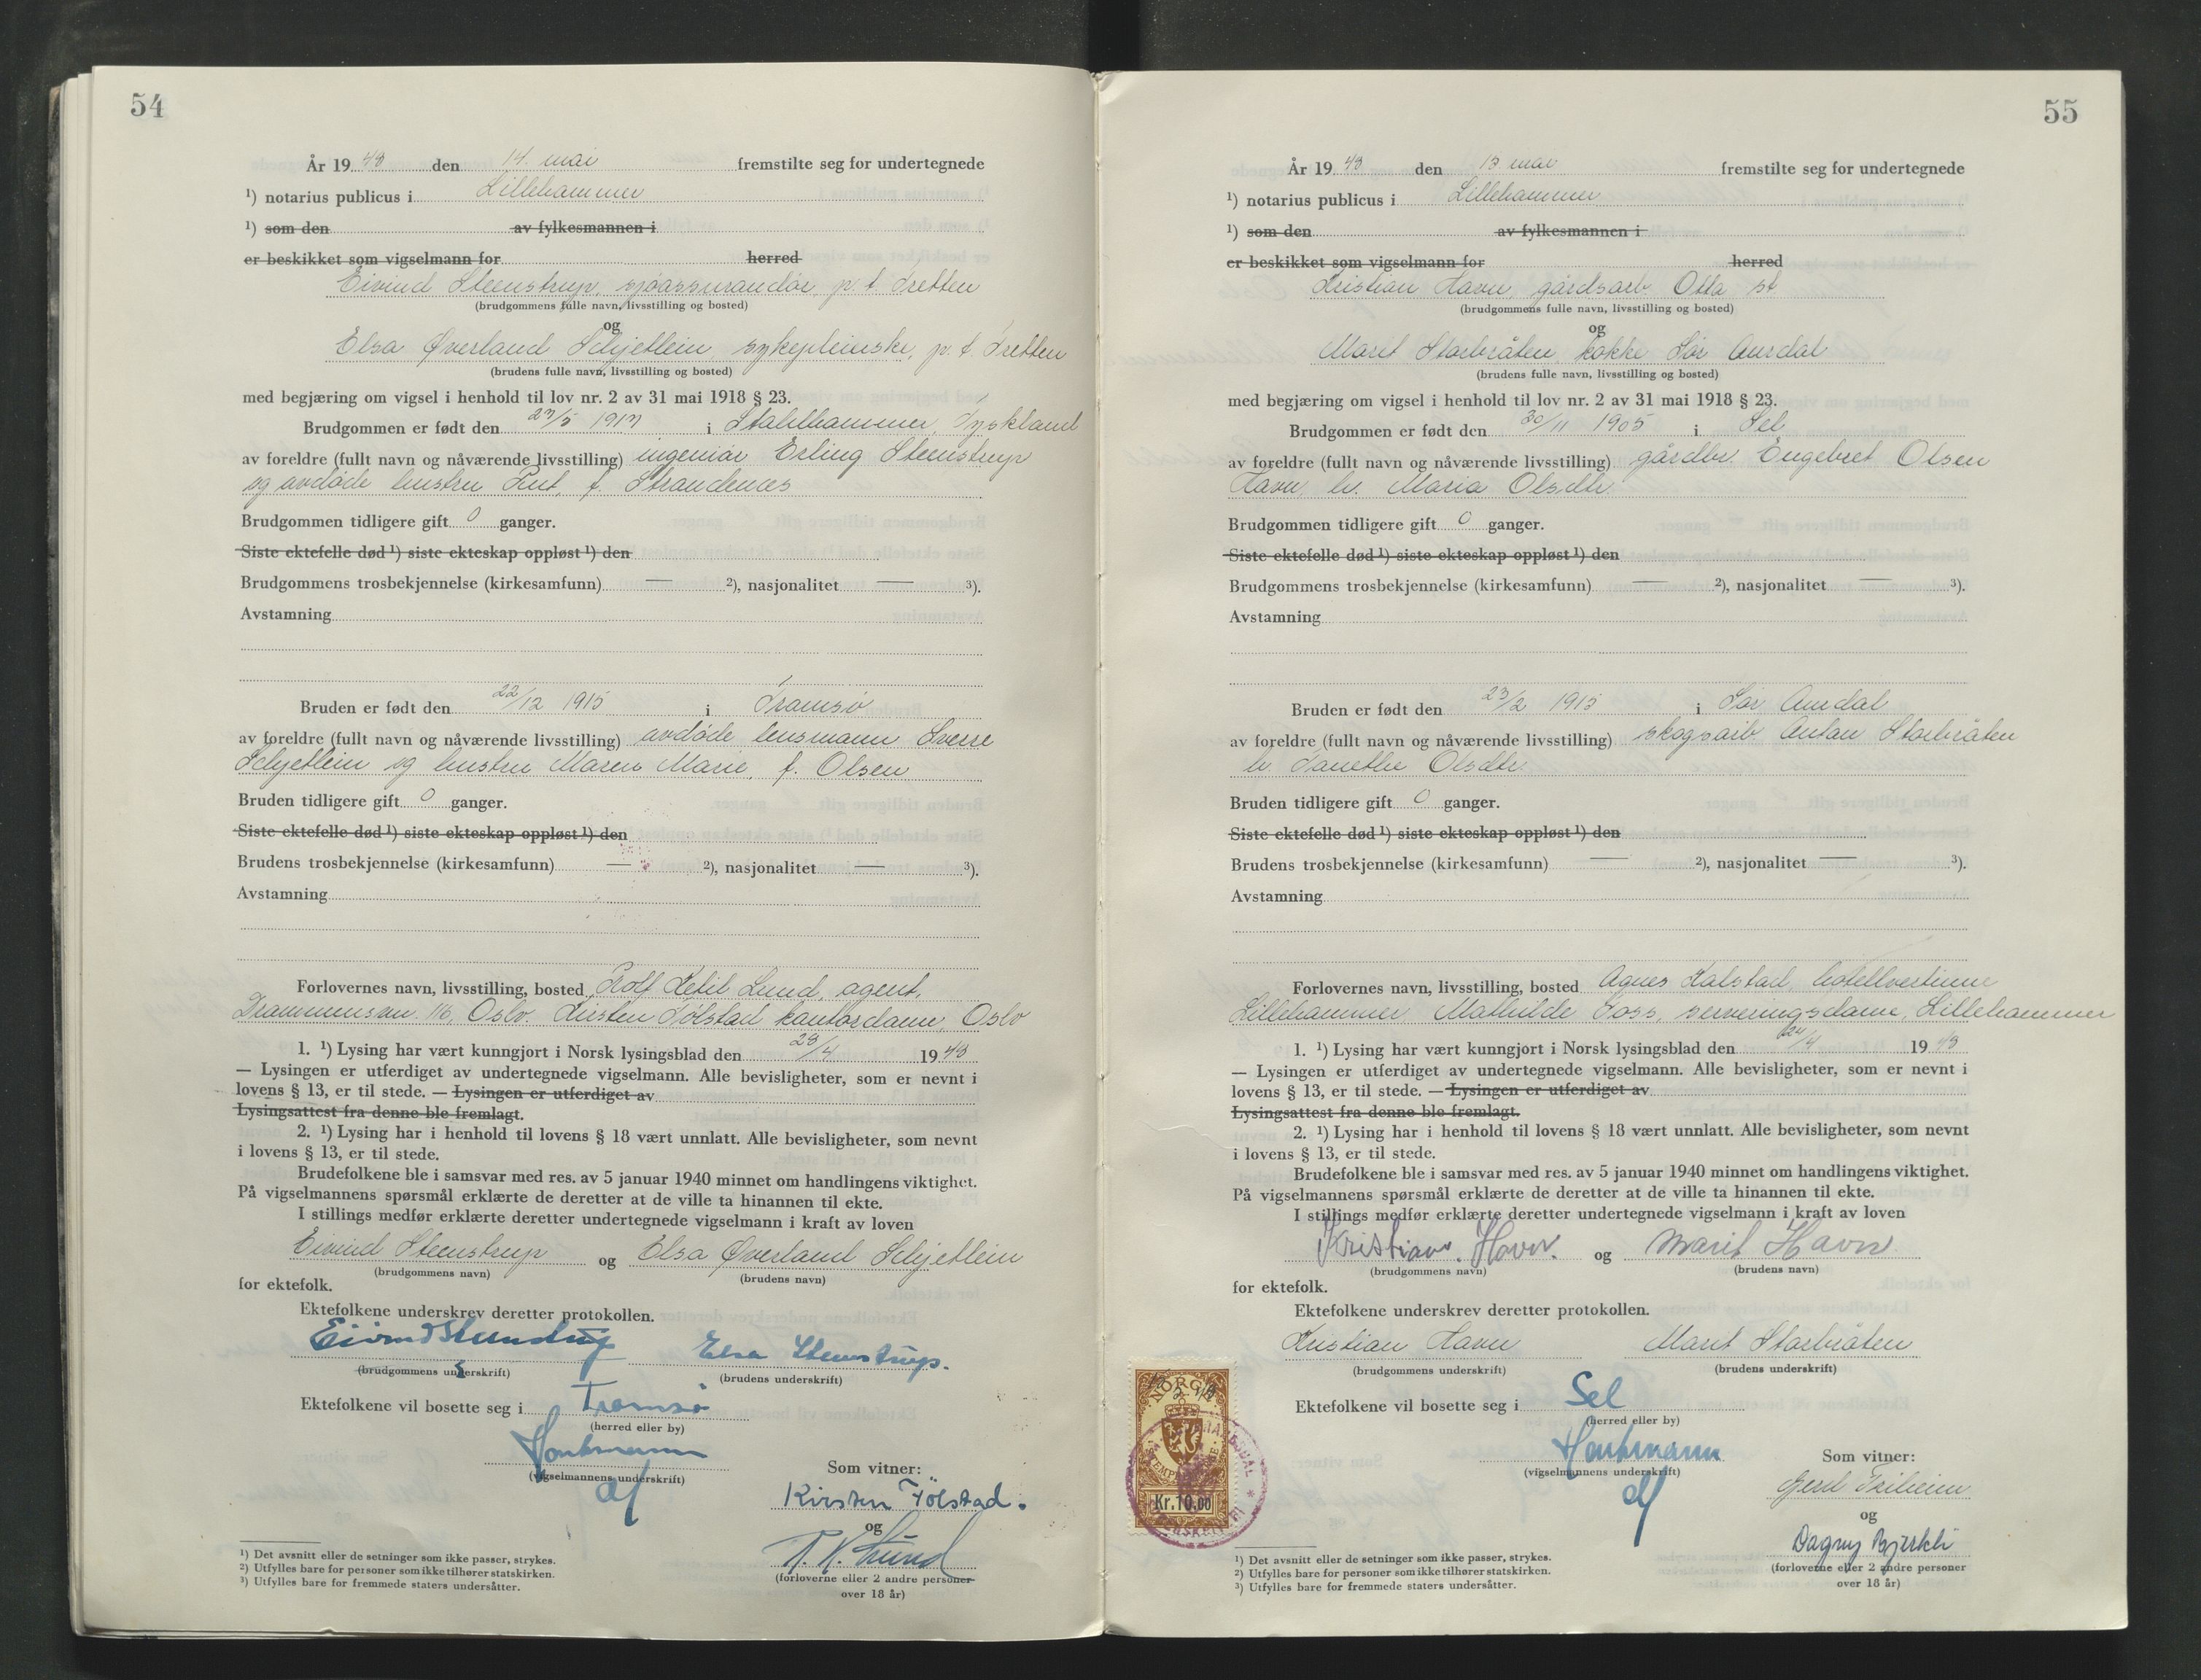 54
År 1943 den 14. mai fremstilte seg for undertegnede
¹) notarius publicus i Lillehammer
¹) som den av fylkesmannen i
er beskikket som vigselmann for herred
Eivind Steenstrup, sjøassurandør, p. t. Tretten
(brudgommens fulle navn, livsstilling og bosted)
og
Elsa Øverland Schjetlein sykepleierske, p. t. Tretten
(brudens fulle navn, livsstilling og bosted)
med begjæring om vigsel i henhold til lov nr. 2 av 31 mai 1918 § 23.
Brudgommen er født den 27/5 1917 i Stahlhammer, Tyskland
av foreldre (fullt navn og nåværende livsstilling) ingeniør Erling Steenstrup
og avdøde hustru Rut, f. Strandenes
Brudgommen tidligere gift 0 ganger.
Siste ektefelle død ¹) siste ekteskap oppløst ¹) den
Brudgommens trosbekjennelse (kirkesamfunn) — ²), nasjonalitet — ³).
Avstamning
Bruden er født den 22/12 1915 i Tromsø
av foreldre (fullt navn og nåværende livsstilling) avdøde lensmann Sverre
Schjetlein og hustru Maren Marie, f. Olsen
Bruden tidligere gift 0 ganger.
Siste ektefelle død ¹) siste ekteskap oppløst ¹) den
Brudens trosbekjennelse (kirkesamfunn) — ²), nasjonalitet — ³).
Avstamning
Forlovernes navn, livsstilling, bosted Rolf Ketil Lund, agent,
Drammensvn. 116, Oslo. Kirsten Tølstad kontordame, Oslo
1. ¹) Lysing har vært kunngjort i Norsk lysingsblad den 28/4 1943
— Lysingen er utferdiget av undertegnede vigselmann. Alle bevisligheter, som er nevnt i
lovens § 13, er til stede. — Lysingen er utferdiget av
Lysingsattest fra denne ble fremlagt.
2. ¹) Lysing har i henhold til lovens § 18 vært unnlatt. Alle bevisligheter, som nevnt
i lovens § 13, er til stede.
Brudefolkene ble i samsvar med res. av 5 januar 1940 minnet om handlingens viktighet.
På vigselmannens spørsmål erklærte de deretter at de ville ta hinannen til ekte.
I stillings medfør erklærte deretter undertegnede vigselmann i kraft av loven
Eivind Steenstrup og Elsa Øverland Schjetlein
(brudgommens navn) (brudens navn)
for ektefolk.
Ektefolkene underskrev deretter protokollen.
Eivind Steenstrup Elsa Steenstrup.
(brudgommens underskrift) (brudens underskrift)
Ektefolkene vil bosette seg i Tromsø
(herred eller by)
(vigselmannens underskrift)
Som vitner:
Kirsten Tölstad.
og
R. K. Lund
(forloverne eller 2 andre personer
over 18 år)
¹) Det avsnitt eller de setninger som ikke passer, strykes.
²) Utfylles bare for personer som ikke tilhører statskirken.
³) Utfylles bare for fremmede staters undersåtter.
55
År 1943 den 15 mai fremstilte seg for undertegnede
¹) notarius publicus i Lillehammer
¹) som den av fylkesmannen i
er beskikket som vigselmann for herred
Kristian Havn, gårdsarb. Otta st
(brudgommens fulle navn, livsstilling og bosted)
og
Marit Storbråten, kokke Sør Aurdal
(brudens fulle navn, livsstilling og bosted)
med begjæring om vigsel i henhold til lov nr. 2 av 31 mai 1918 § 23.
Brudgommen er født den 30/11 1905 i Sel
av foreldre (fullt navn og nåværende livsstilling) gårdbr. Engebret Olsen
Havn, h. Maria Olsdtr.
Brudgommen tidligere gift 0 ganger.
Siste ektefelle død ¹) siste ekteskap oppløst ¹) den
Brudgommens trosbekjennelse (kirkesamfunn) — ²), nasjonalitet — ³).
Avstamning
Bruden er født den 23/2 1915 i Sør Aurdal
av foreldre (fullt navn og nåværende livsstilling) skogsarb. Anton Storbråten
h. Tanethe Olsdtr.
Bruden tidligere gift 0 ganger.
Siste ektefelle død ¹) siste ekteskap oppløst ¹) den
Brudens trosbekjennelse (kirkesamfunn) — ²), nasjonalitet — ³).
Avstamning
Forlovernes navn, livsstilling, bosted Agnes Kalstad, hotellvertinne
Lillehammer Mathilde Foss, serveringsdame, Lillehammer
1. ¹) Lysing har vært kunngjort i Norsk lysingsblad den 1943
— Lysingen er utferdiget av undertegnede vigselmann. Alle bevisligheter, som er nevnt i
lovens § 13, er til stede. — Lysingen er utferdiget av
Lysingsattest fra denne ble fremlagt.
2. ¹) Lysing har i henhold til lovens § 18 vært unnlatt. Alle bevisligheter, som nevnt
i lovens § 13, er til stede.
Brudefolkene ble i samsvar med res. av 5 januar 1940 minnet om handlingens viktighet.
På vigselmannens spørsmål erklærte de deretter at de ville ta hinannen til ekte.
I stillings medfør erklærte deretter undertegnede vigselmann i kraft av loven
Kristian. Havn. og Marit Havn
(brudgommens navn) (brudens navn)
for ektefolk.
Ektefolkene underskrev deretter protokollen.
Kristian Havn Marit Storbråten
(brudgommens underskrift) (brudens underskrift)
Ektefolkene vil bosette seg i Sel
(herred eller by)
(vigselmannens underskrift)
NORGE
Kr.10.00
Som vitner:
Gerd
og
Dagny
(forloverne eller 2 andre personer
over 18 år)
¹) Det avsnitt eller de setninger som ikke passer, strykes.
²) Utfylles bare for personer som ikke tilhører statskirken.
³) Utfylles bare for fremmede staters undersåtter.